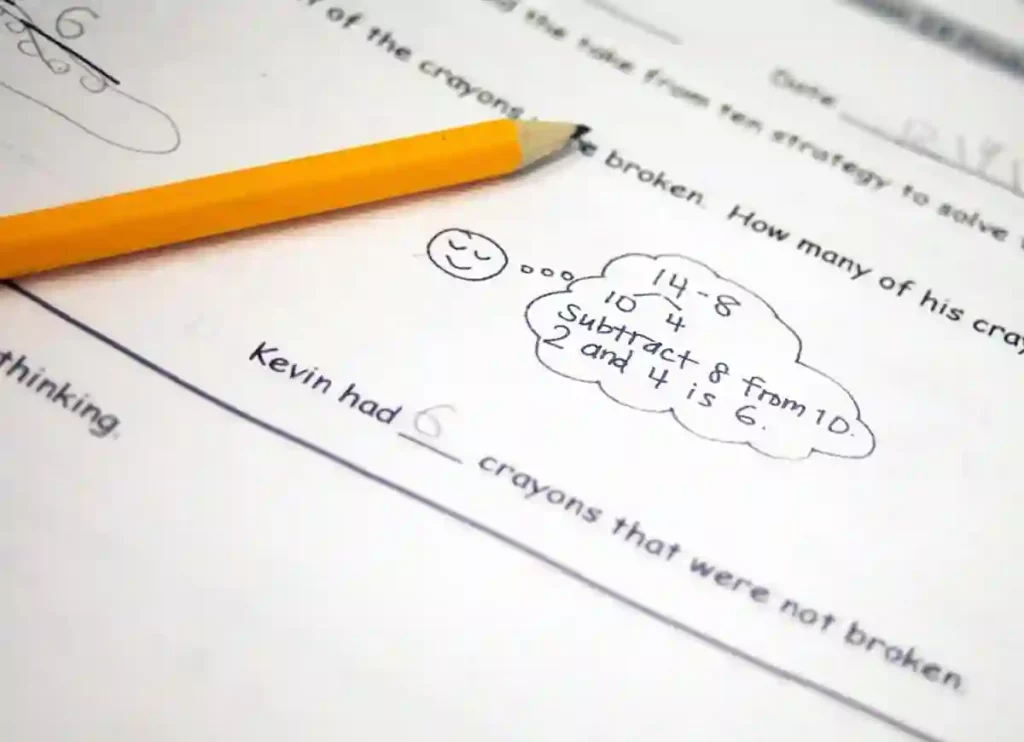 6
Date
the take from ten strategy to solve
of the crayons broken. How many of his
14-8
10 4
Subtract 8 from 10.
2 and 4 is 6.
Kevin had 6 crayons that were not broken.
thinking.